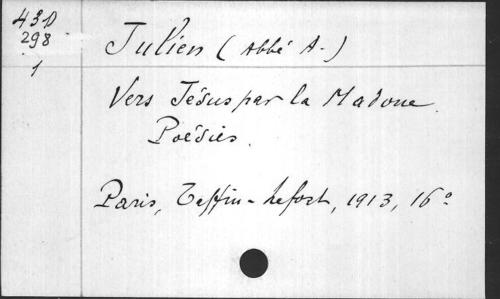 43D
298
1
Julien (Abbé A.)
Vers Jésus par la Madone.
Poésies.
Paris, Teffin-Lefort, 1913, 16°